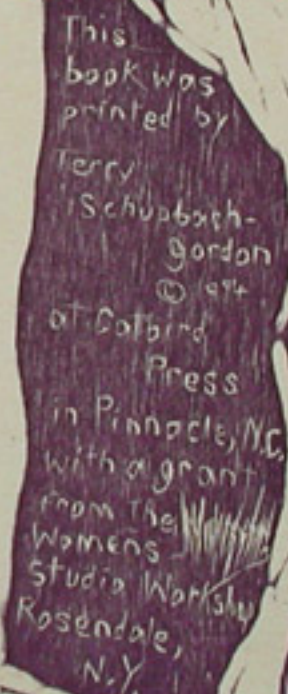 This
book was
printed by
Terry
Schupbach-
gordon
© 1994
at Catbird
Press
in Pinnacle, N.C.
with a grant
from The
Womens
Studio Workshop
Rosendale,
N.Y